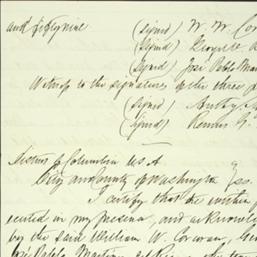 and fifty nine (signed) W. W. Cor
(signed) George
(signed) José Pablo Mar
Witness to the signatures of the three
(signed)
(signed)
District of Columbia U.S.A
City and County of Washington } ss.
I certify that the within
ecuted in my presence, and acknowle
by the said William W. Corcoran, Geo
José Pablo Martinez